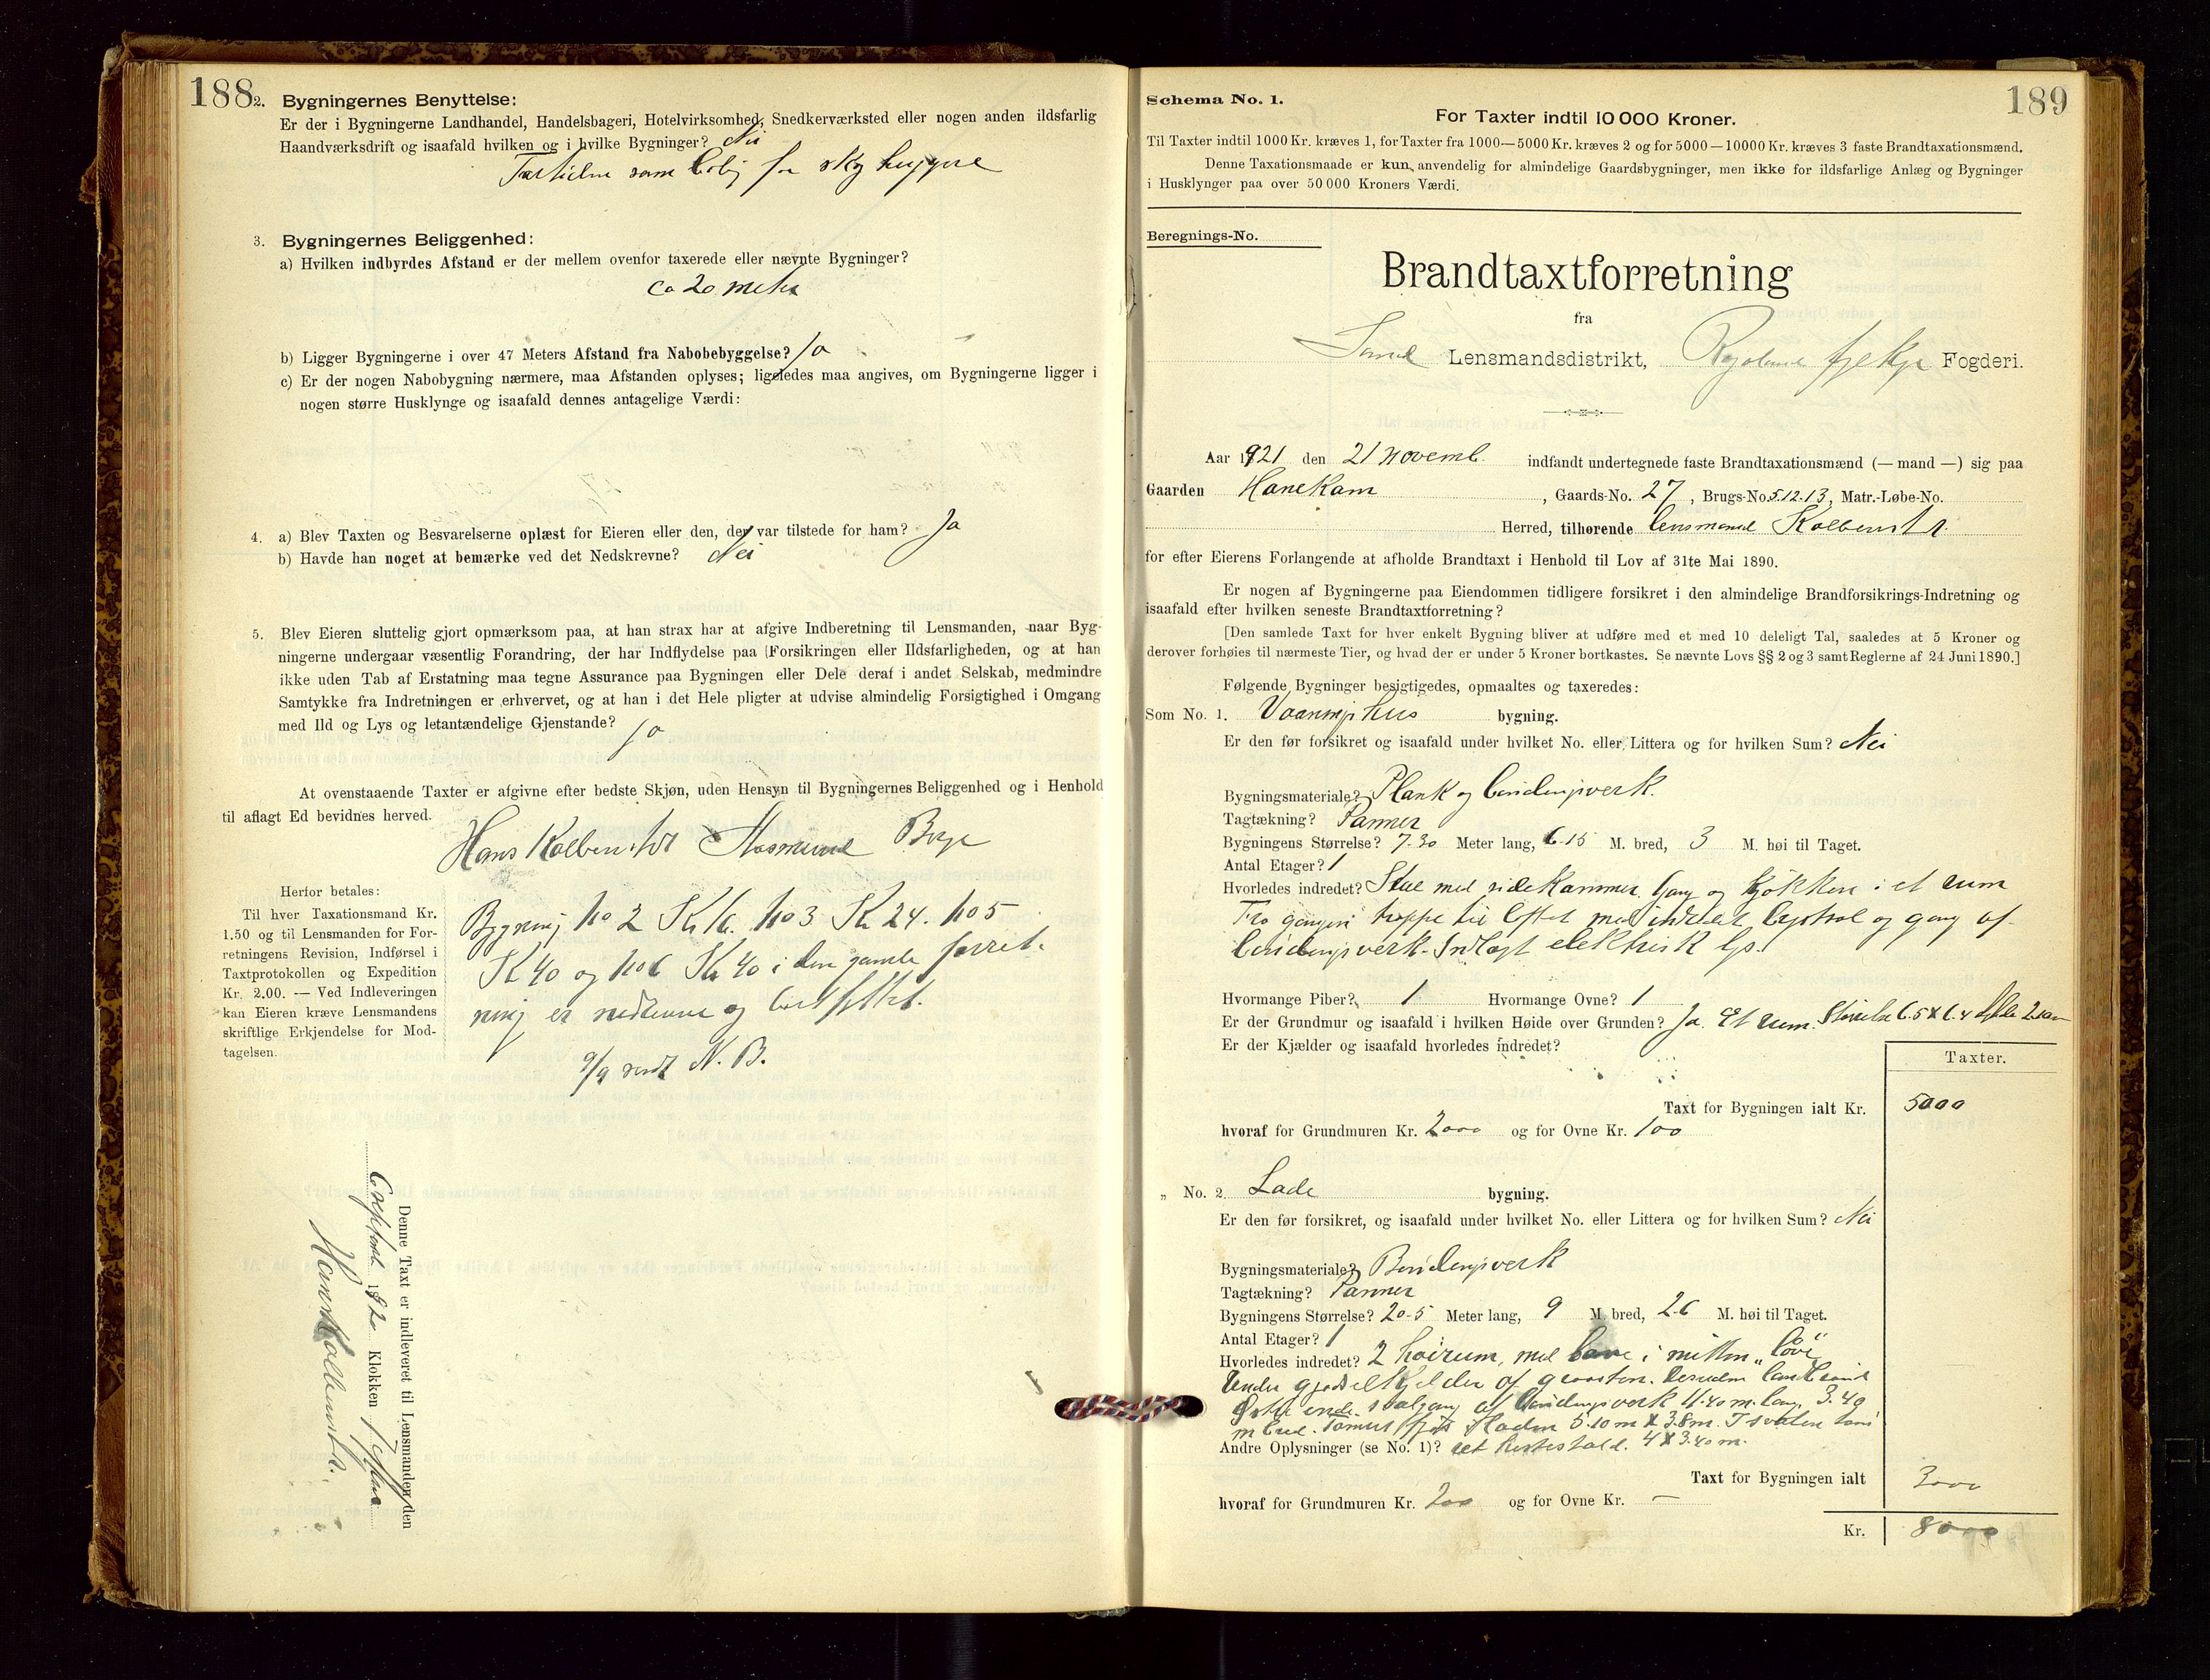 188
2. Bygningernes Benyttelse:
Er der i Bygningerne Landhandel, Handelsbageri, Hotelvirksomhed, Snedkerværksted eller nogen anden ildsfarlig
Haandværksdrift og isaafald hvilken og i hvilke Bygninger? Nei
som bolig for
3. Bygningernes Beliggenhed:
a) Hvilken indbyrdes Afstand er der mellem ovenfor taxerede eller nævnte Bygninger?
ca 20 meter
b) Ligger Bygningerne i over 47 Meters Afstand fra Nabobebyggelse? Ja
c) Er der nogen Nabobygning nærmere, maa Afstanden oplyses; ligeledes maa angives, om Bygningerne ligger i
nogen større Husklynge og isaafald dennes antagelige Værdi:
4. a) Blev Taxten og Besvarelserne oplæst for Eieren eller den, der var tilstede for ham? Ja
b) Havde han noget at bemærke ved det Nedskrevne? Nei
5. Blev Eieren sluttelig gjort opmærksom paa, at han strax har at afgive Indberetning til Lensmanden, naar Byg-
ningerne undergaar væsentlig Forandring, der har Indflydelse paa Forsikringen eller Ildsfarligheden, og at han
ikke uden Tab af Erstatning maa tegne Assurance paa Bygningen eller Dele deraf i andet Selskab, medmindre
Samtykke fra Indretningen er erhvervet, og at han i det Hele pligter at udvise almindelig Forsigtighed i Omgang
med Ild og Lys og letantændelige Gjenstande? Ja
At ovenstaaende Taxter er afgivne efter bedste Skjøn, uden Hensyn til Bygningernes Beliggenhed og i Henhold
til aflagt Ed bevidnes herved.
Hans Kolbenstvt Aasmund
Herfor betales:
Til hver Taxationsmand Kr.
1.50 og til Lensmanden for For-
retningens Revision, Indførsel i
Taxtprotokollen og Expedition
Kr. 2.00. — Ved Indleveringen
kan Eieren kræve Lensmandens
skriftlige Erkjendelse for Mod-
tagelsen.
Bygning no 2 no 3 Kr 24. no 5
Kr 40 og no 6 Kr 40 i den gamle forret-
ning er nedrevne og
9/9 sendt N. B.
Denne Taxt er indleveret til Lensmanden den
6 septemb. 1920 Klokken 7
189
Schema No. 1.
For Taxter indtil 10 000 Kroner.
Til Taxter indtil 1000 Kr. kræves 1, for Taxter fra 1000—5000 Kr. kræves 2 og for 5000—10000 Kr. kræves 3 faste Brandtaxationsmænd.
Denne Taxationsmaade er kun anvendelig for almindelige Gaardsbygninger, men ikke for ildsfarlige Anlæg og Bygninger
i Husklynger paa over 50 000 Kroners Værdi.
Beregnings-No.
Brandtaxtforretning
fra
Sand Lensmandsdistrikt, Fogderi.
Aar 1921 den 21 novemb. indfandt undertegnede faste Brandtaxationsmænd (— mand —) sig paa
Gaarden Hanekam, Gaards-No. 27, Brugs-No. 5.12.13, Matr.-Løbe-No.
Herred, tilhørende lensmand Kolbenstvt
for efter Eierens Forlangende at afholde Brandtaxt i Henhold til Lov af 31te Mai 1890.
Er nogen af Bygningerne paa Eiendommen tidligere forsikret i den almindelige Brandforsikrings-Indretning og
isaafald efter hvilken seneste Brandtaxtforretning?
[Den samlede Taxt for hver enkelt Bygning bliver at udføre med et med 10 deleligt Tal, saaledes at 5 Kroner og
derover forhøies til nærmeste Tier, og hvad der er under 5 Kroner bortkastes. Se nævnte Lovs §§ 2 og 3 samt Reglerne af 24 Juni 1890.]
Følgende Bygninger besigtigedes, opmaaltes og taxeredes:
Som No. 1. Vaaningshus bygning.
Er den før forsikret og isaafald under hvilket No. eller Littera og for hvilken Sum? Nei
Bygningsmateriale? Plank og bindingsverk.
Tagtækning? Panner
Bygningens Størrelse? 7.30 Meter lang, 6.15 M. bred, 3 M. høi til Taget.
Antal Etager? 1
Hvorledes indredet? Stue med sidekammer, Gang og kjøkken i et rum
Fra gangen trappe til loftet med og gang af
bindingsverk. Indlagt elektrisk lys.
Hvormange Piber? 1 Hvormange Ovne? 1
Er der Grundmur og isaafald i hvilken Høide over Grunden? Ja. Et rum. Størrelse 6.5 x 6.4
Er der Kjælder og isaafald hvorledes indredet?
Taxter.
Taxt for Bygningen ialt Kr. 5000
hvoraf for Grundmuren Kr. 2000 og for Ovne Kr. 100
„ No. 2. Lade bygning.
Er den før forsikret, og isaafald under hvilket No. eller Littera og for hvilken Sum? Nei
Bygningsmateriale? Bindingsverk
Tagtækning? Panner
Bygningens Størrelse? 20.5 Meter lang, 9 M. bred, 2.6 M. høi til Taget.
Antal Etager? 1
Hvorledes indredet? 2 høirum, med i midten „løve"
Under gjødselkjelder af graasten. Desuden
svalgang af bindingsverk 11.40 m. lang, 3.40
m bred. 5.10 m x 3.8 m.
Andre Oplysninger (se No. 1)? et hestestald. 4 x 3.40 m.
Taxt for Bygningen ialt 3000
hvoraf for Grundmuren Kr. 200 og for Ovne Kr. —
Kr. 8000